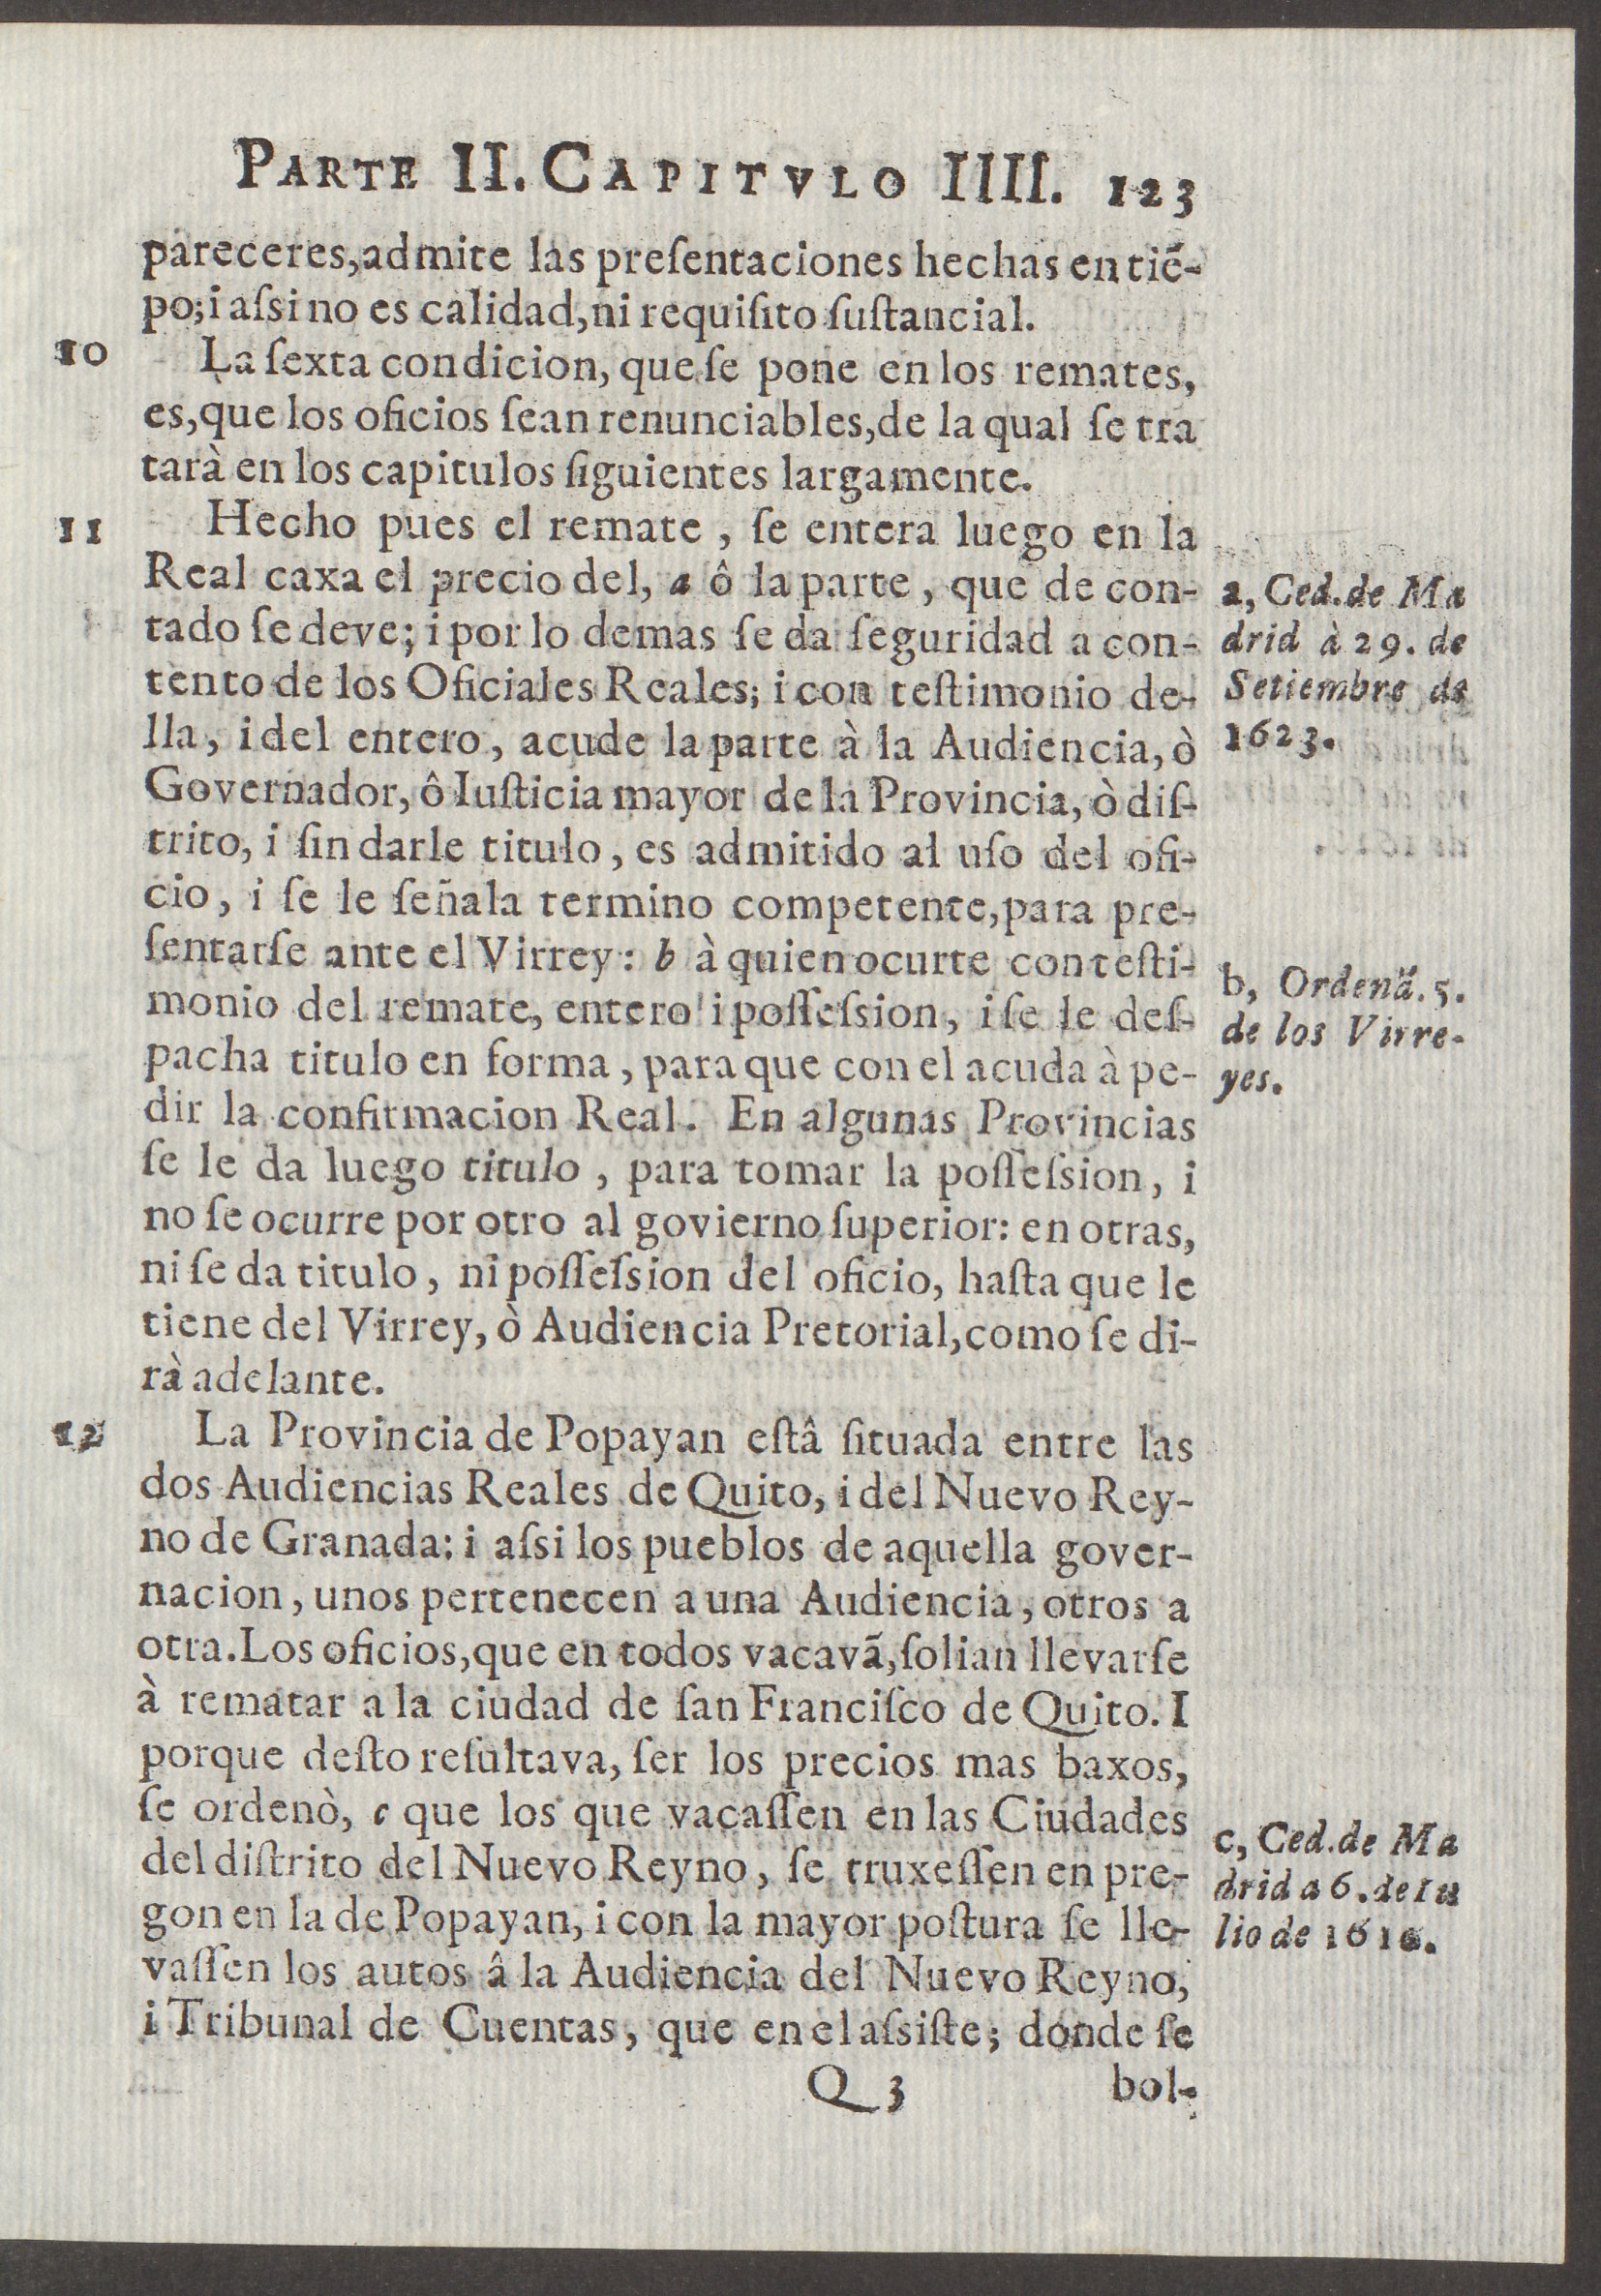 PARTE II. CAPITVLO IIII. 123
pareceres, admite las preſentaciones hechas en tiẽ-
po; i aſsi no es calidad, ni requiſito ſuſtancial.
10 La ſexta condicion, que ſe pone en los remates,
es, que los oficios ſean renunciables, de la qual ſe tra
tarà en los capitulos ſiguientes largamente.
11 Hecho pues el remate, ſe entera luego en la
Real caxa el precio del, a ô la parte, que de con-
tado ſe deve; i por lo demas ſe da ſeguridad a con-
tento de los Oficiales Reales; i con teſtimonio de-
lla, i del entero, acude la parte à la Audiencia, ò
Governador, ô Iuſticia mayor de la Provincia, ò diſ-
trito, i ſin darle titulo, es admitido al uſo del ofi-
cio, i ſe le ſeñala termino competente, para pre-
ſentarſe ante el Virrey: b à quien ocurre con teſti-
monio del remate, entero i poſſeſsion, i ſe le deſ-
pacha titulo en forma, para que con el acuda à pe-
dir la confirmacion Real. En algunas Provincias
ſe le da luego titulo, para tomar la poſſeſsion, i
no ſe ocurre por otro al govierno ſuperior: en otras,
ni ſe da titulo, ni poſſeſsion del oficio, haſta que le
tiene del Virrey, ò Audiencia Pretorial, como ſe di-
rà adelante.
12 La Provincia de Popayan eſtâ ſituada entre las
dos Audiencias Reales de Quito, i del Nuevo Rey-
no de Granada: i aſsi los pueblos de aquella gover-
nacion, unos pertenecen a una Audiencia, otros a
otra. Los oficios, que en todos vacavã, ſolian llevarſe
à rematar a la ciudad de ſan Franciſco de Quito. I
porque deſto reſultava, ſer los precios mas baxos,
ſe ordenò, c que los que vacaſſen en las Ciudades
del diſtrito del Nuevo Reyno, ſe truxeſſen en pre-
gon en la de Popayan, i con la mayor poſtura ſe lle-
vaſſen los autos â la Audiencia del Nuevo Reyno,
i Tribunal de Cuentas, que en el aſsiſte; donde ſe
Q 3 bol-
a, Ced. de Ma
drid à 29. de
Setiembre de
1623.
b, Ordenã. 5.
de los Virre-
yes.
c, Ced. de Ma
drid a 6. de Iu
lio de